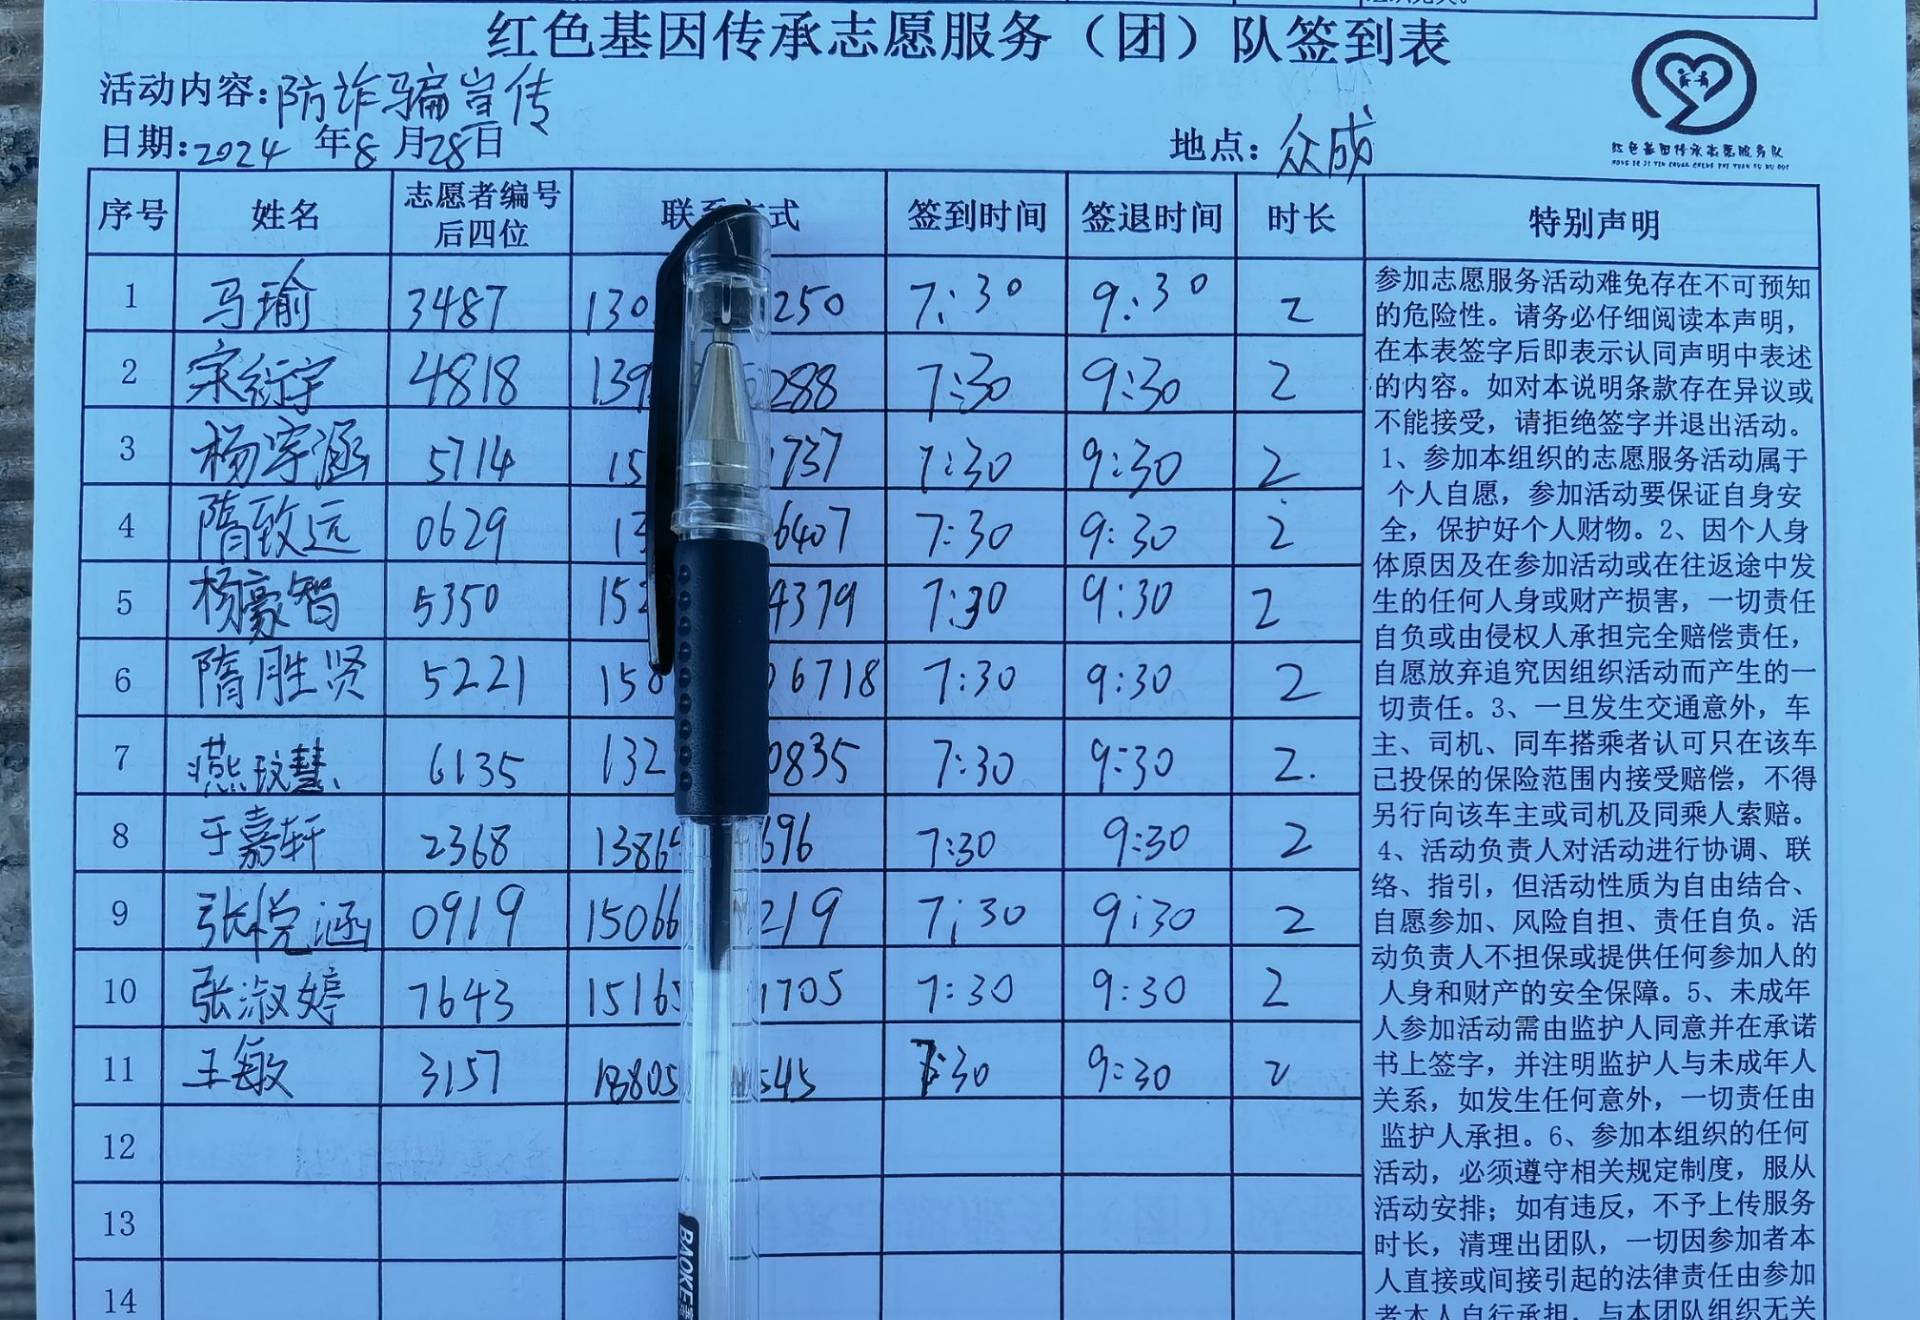 红色基因传承志愿服务（团）队签到表
活动内容：防诈骗宣传
日期：2024 年 8 月 28 日 地点：众成
红色基因传承志愿服务队
序号 姓名 志愿者编号后四位 联系方式 签到时间 签退时间 时长 特别声明
1 马瑜 3487 130 250 7:30 9:30 2
2 宋衍宇 4818 139 288 7:30 9:30 2
3 杨宇涵 5714 15 737 7:30 9:30 2
4 隋致远 0629 13 6407 7:30 9:30 2
5 杨豪智 5350 152 4379 7:30 9:30 2
6 隋胜贤 5221 158 6718 7:30 9:30 2
7 燕玟慧 6135 132 0835 7:30 9:30 2.
8 于嘉轩 2368 1386 696 7:30 9:30 2
9 张悦涵 0919 15066 219 7:30 9:30 2
10 张淑婷 7643 15165 1705 7:30 9:30 2
11 王敏 3157 18805 545 7:30 9:30 2
12
13
14
参加志愿服务活动难免存在不可预知
的危险性。请务必仔细阅读本声明，
在本表签字后即表示认同声明中表述
的内容。如对本说明条款存在异议或
不能接受，请拒绝签字并退出活动。
1、参加本组织的志愿服务活动属于
个人自愿，参加活动要保证自身安
全，保护好个人财物。2、因个人身
体原因及在参加活动或在往返途中发
生的任何人身或财产损害，一切责任
自负或由侵权人承担完全赔偿责任，
自愿放弃追究因组织活动而产生的一
切责任。3、一旦发生交通意外，车
主、司机、同车搭乘者认可只在该车
已投保的保险范围内接受赔偿，不得
另行向该车主或司机及同乘人索赔。
4、活动负责人对活动进行协调、联
络、指引，但活动性质为自由结合、
自愿参加、风险自担、责任自负。活
动负责人不担保或提供任何参加人的
人身和财产的安全保障。5、未成年
人参加活动需由监护人同意并在承诺
书上签字，并注明监护人与未成年人
关系，如发生任何意外，一切责任由
监护人承担。6、参加本组织的任何
活动，必须遵守相关规定制度，服从
活动安排；如有违反，不予上传服务
时长，清理出团队，一切因参加者本
人直接或间接引起的法律责任由参加
者本人自行承担，与本团队组织无关
BAOKE